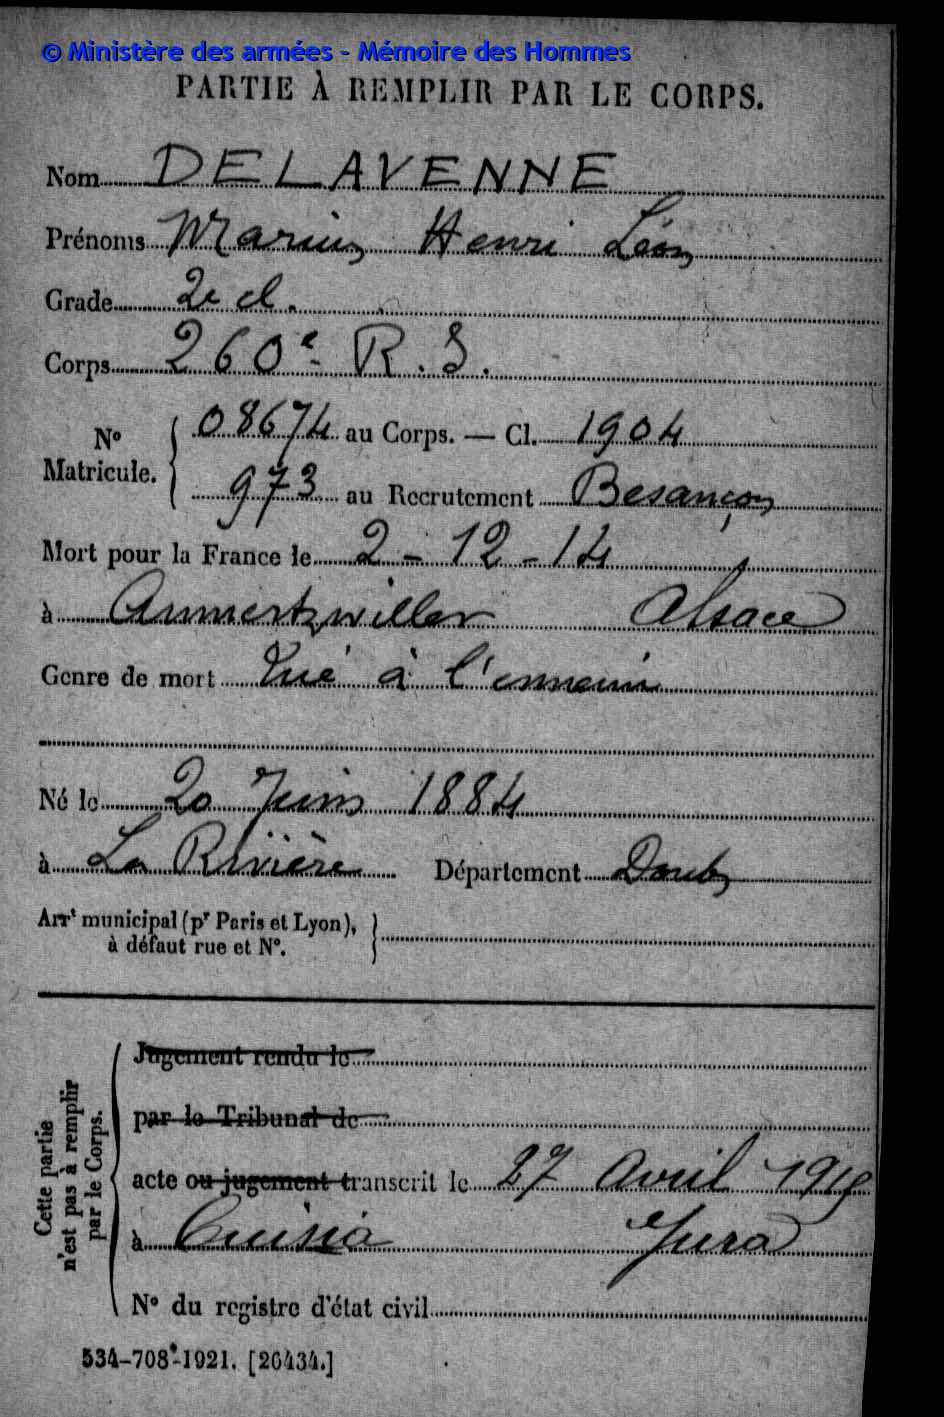 © Ministère des armées - Mémoire des Hommes
PARTIE À REMPLIR PAR LE CORPS.
Nom DELAVENNE
Prénoms Marius Henri Léon
Grade 2e cl.
Corps 260e R.I.
No Matricule. 08674 au Corps. — Cl. 1904
973 au Recrutement Besançon
Mort pour la France le 2-12-14
à Ammertzwiller Alsace
Genre de mort Tué à l'ennemi
Né le 20 Juin 1884
à La Rivière Département Doubs
Arrt municipal (pr Paris et Lyon),
à défaut rue et No.
Cette partie
n'est pas à remplir
par le Corps.
Jugement rendu le
par le Tribunal de
acte ou jugement transcrit le 27 Avril 1915
à Cuisia Jura
No du registre d'état civil
534-708-1921. [26434.]